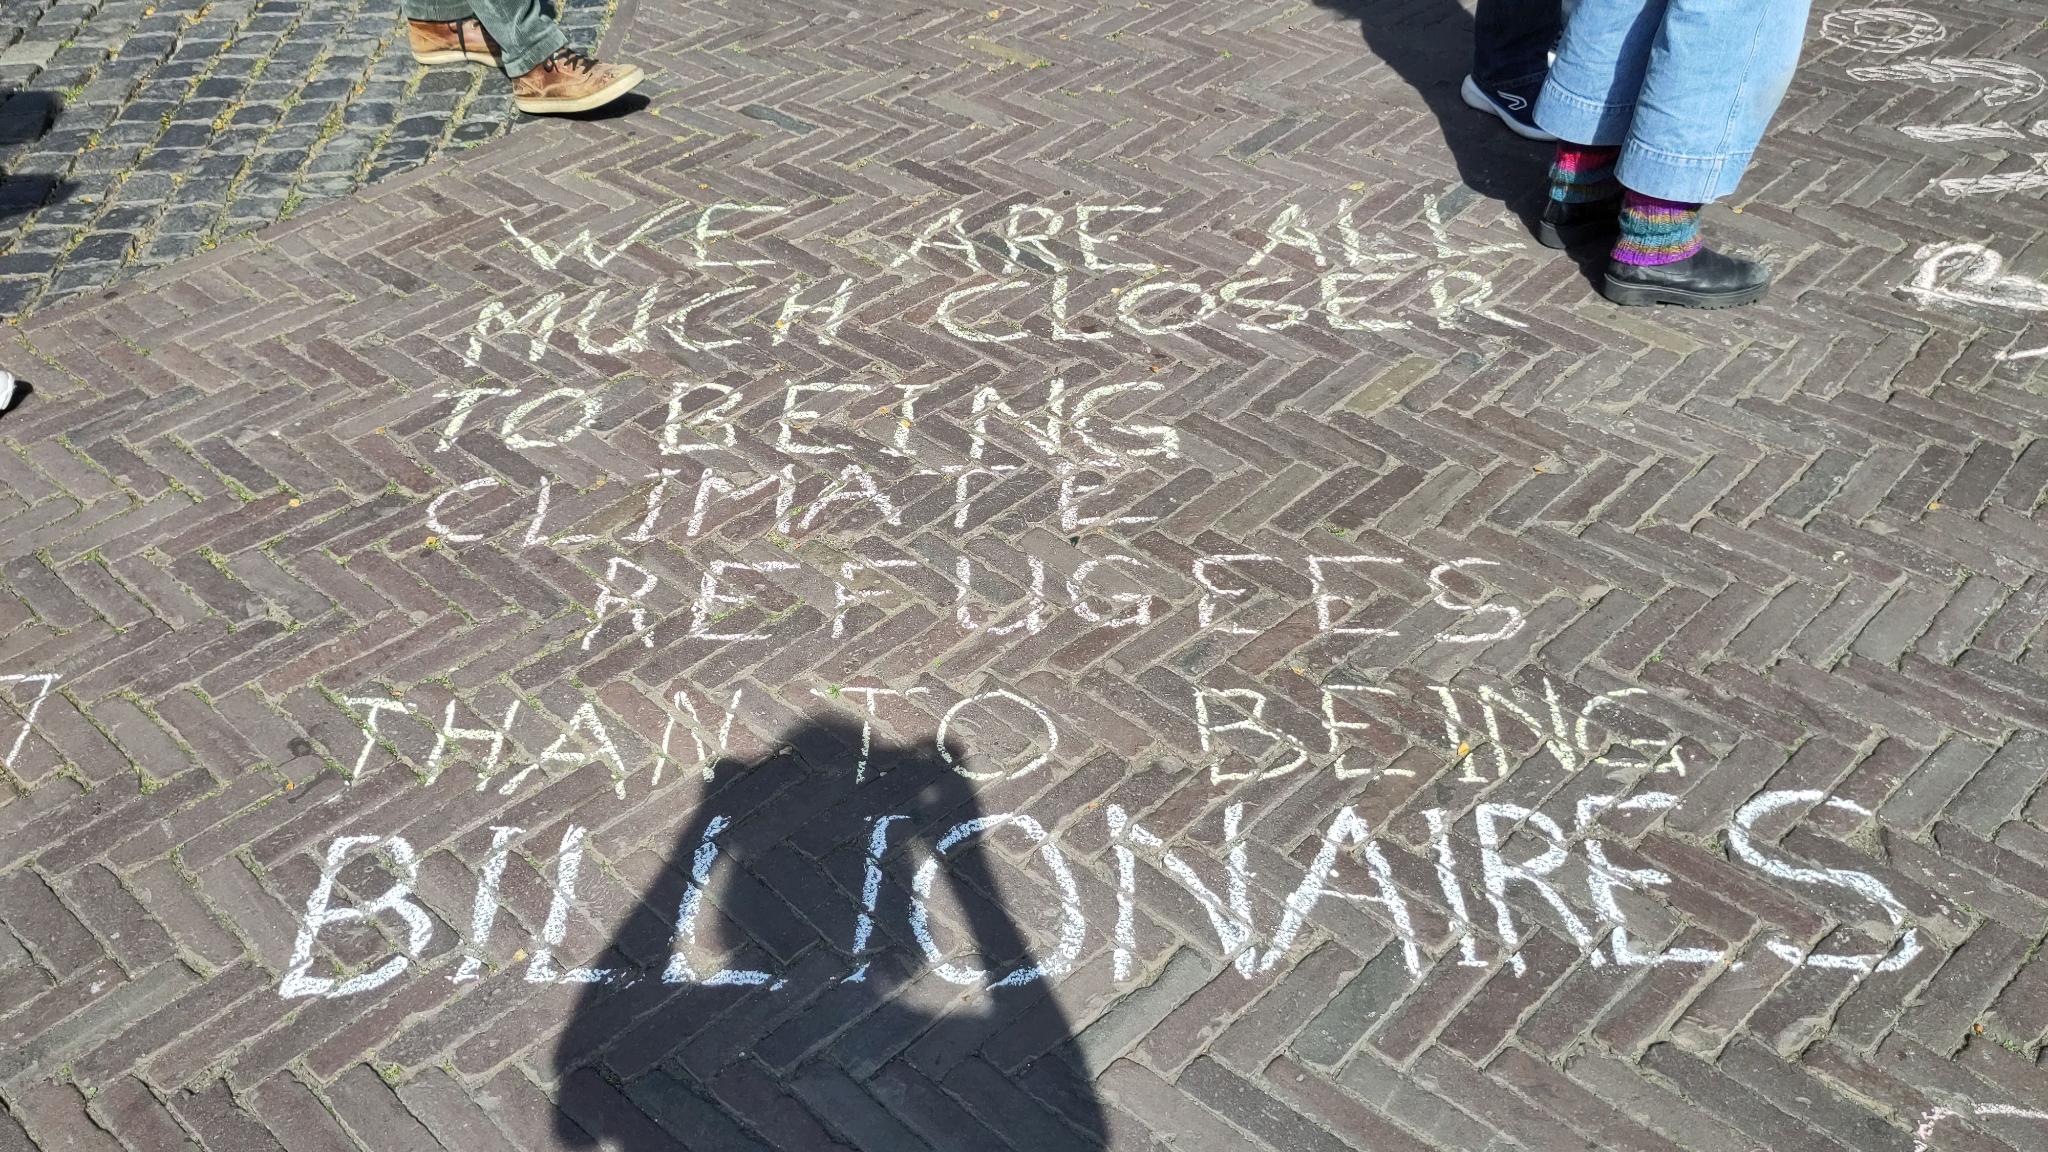 WE ARE ALL
MUCH CLOSER
TO BEING
CLIMATE
REFUGEES
THAN TO BEING
BILLIONAIRES